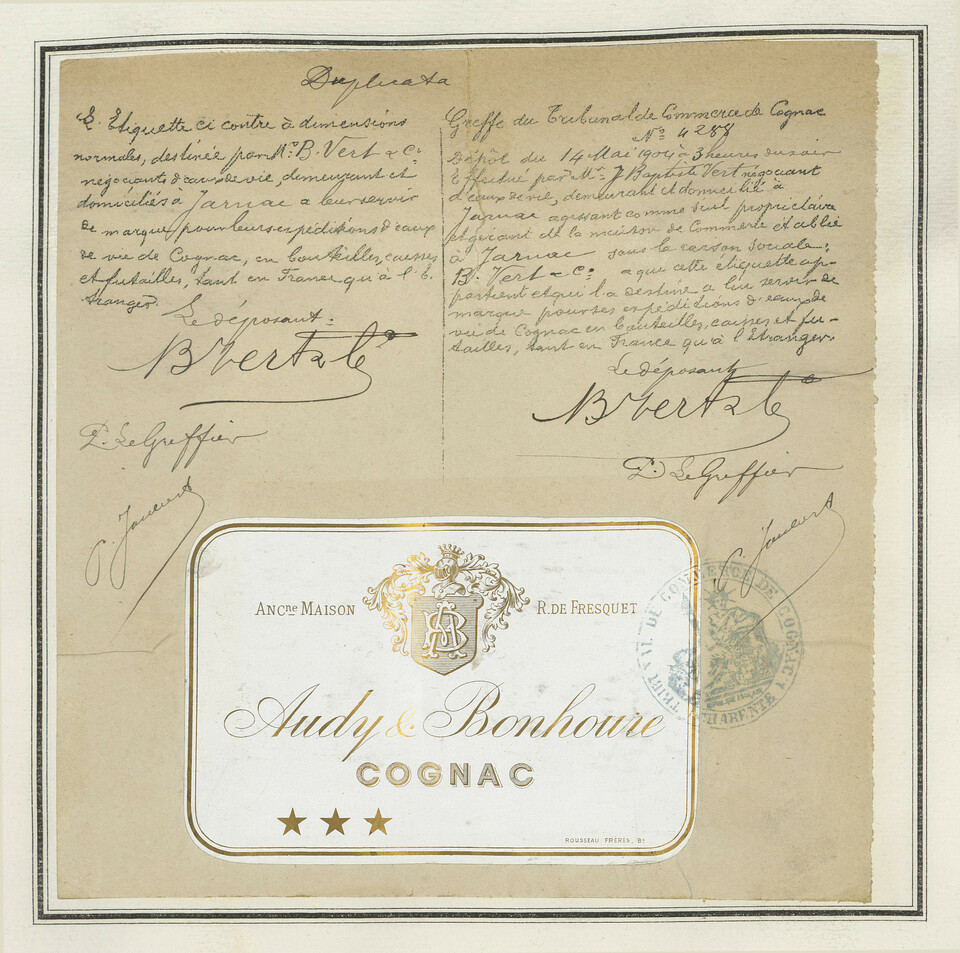 Duplicata
L'Etiquette ci contre à dimensions
normales, destinée par Mrs. B. Vert & Cie
négociants d'eaux de vie, demeurant et
domiciliés à Jarnac a leur servir
de marque pour leurs expéditions d'eaux
de vie de Cognac, en bouteilles, caisses
et futailles, tant en France qu'à l'E
tranger.
Le déposant:
B Vert & Co
P. Le Greffier
Greffe du Tribunal de Commerce de Cognac
No 4288
Dépôt du 14 Mai 1904 à 3 heures du soir
Effectué par Mr. J Baptiste Vert négociant
d'eaux de vie, demeurant et domicilié à
Jarnac agissant comme seul propriétaire
et gérant de la maison de Commerce établie
à Jarnac sous la raison sociale:
B. Vert & Co. a que cette étiquette ap-
partient et qui l'a destine a lui servir de
marque pour ses expéditions d'eaux de
vie de Cognac en bouteilles, caisses et fu-
tailles, tant en France qu'à l'Etranger.
Le déposant
B Vert & Co
P. Le Greffier
TRIBUNAL DE COMMERCE DE COGNAC
CHARENTE
ANCne MAISON R. DE FRESQUET
AB
Audy & Bonhoure
COGNAC
ROUSSEAU FRÈRES, Bx